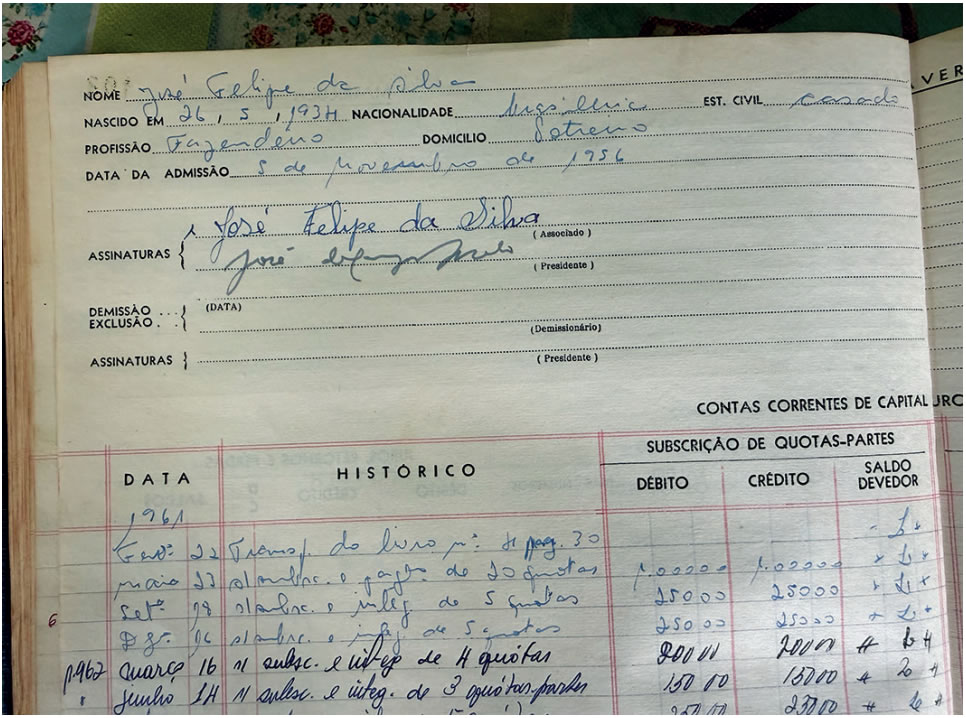 NOME José Felipe da Silva
NASCIDO EM 26, 5, 1934 NACIONALIDADE brasileira EST. CIVIL casado
PROFISSÃO Fazendeiro DOMICILIO
DATA DA ADMISSÃO 5 de Novembro de 1956
ASSINATURAS José Felipe da Silva
(Associado)
José
(Presidente)
DEMISSÃO ... (DATA)
EXCLUSÃO . .
(Demissionário)
ASSINATURAS
(Presidente)
VER
CONTAS CORRENTES DE CAPITAL
JRO
DATA HISTÓRICO SUBSCRIÇÃO DE QUOTAS-PARTES
DÉBITO CRÉDITO SALDO DEVEDOR
1961
22 Transf. do livro nº pag. 30
maio 23 s/ subsc. e pagto de 20 quotas 1.00000 1.00000
Setº 18 s/ subsc. e integ. de 5 quotas 25000 25000
6
Dzº 16 s/ subsc. e integ. de 5 quotas 25000 25000
1962 março 16 s/ subsc. e integ de 4 quótas 20000 20000
" Junho 14 s/ subsc. e integ. de 3 quótas-partes 15000 15000
25000 25000